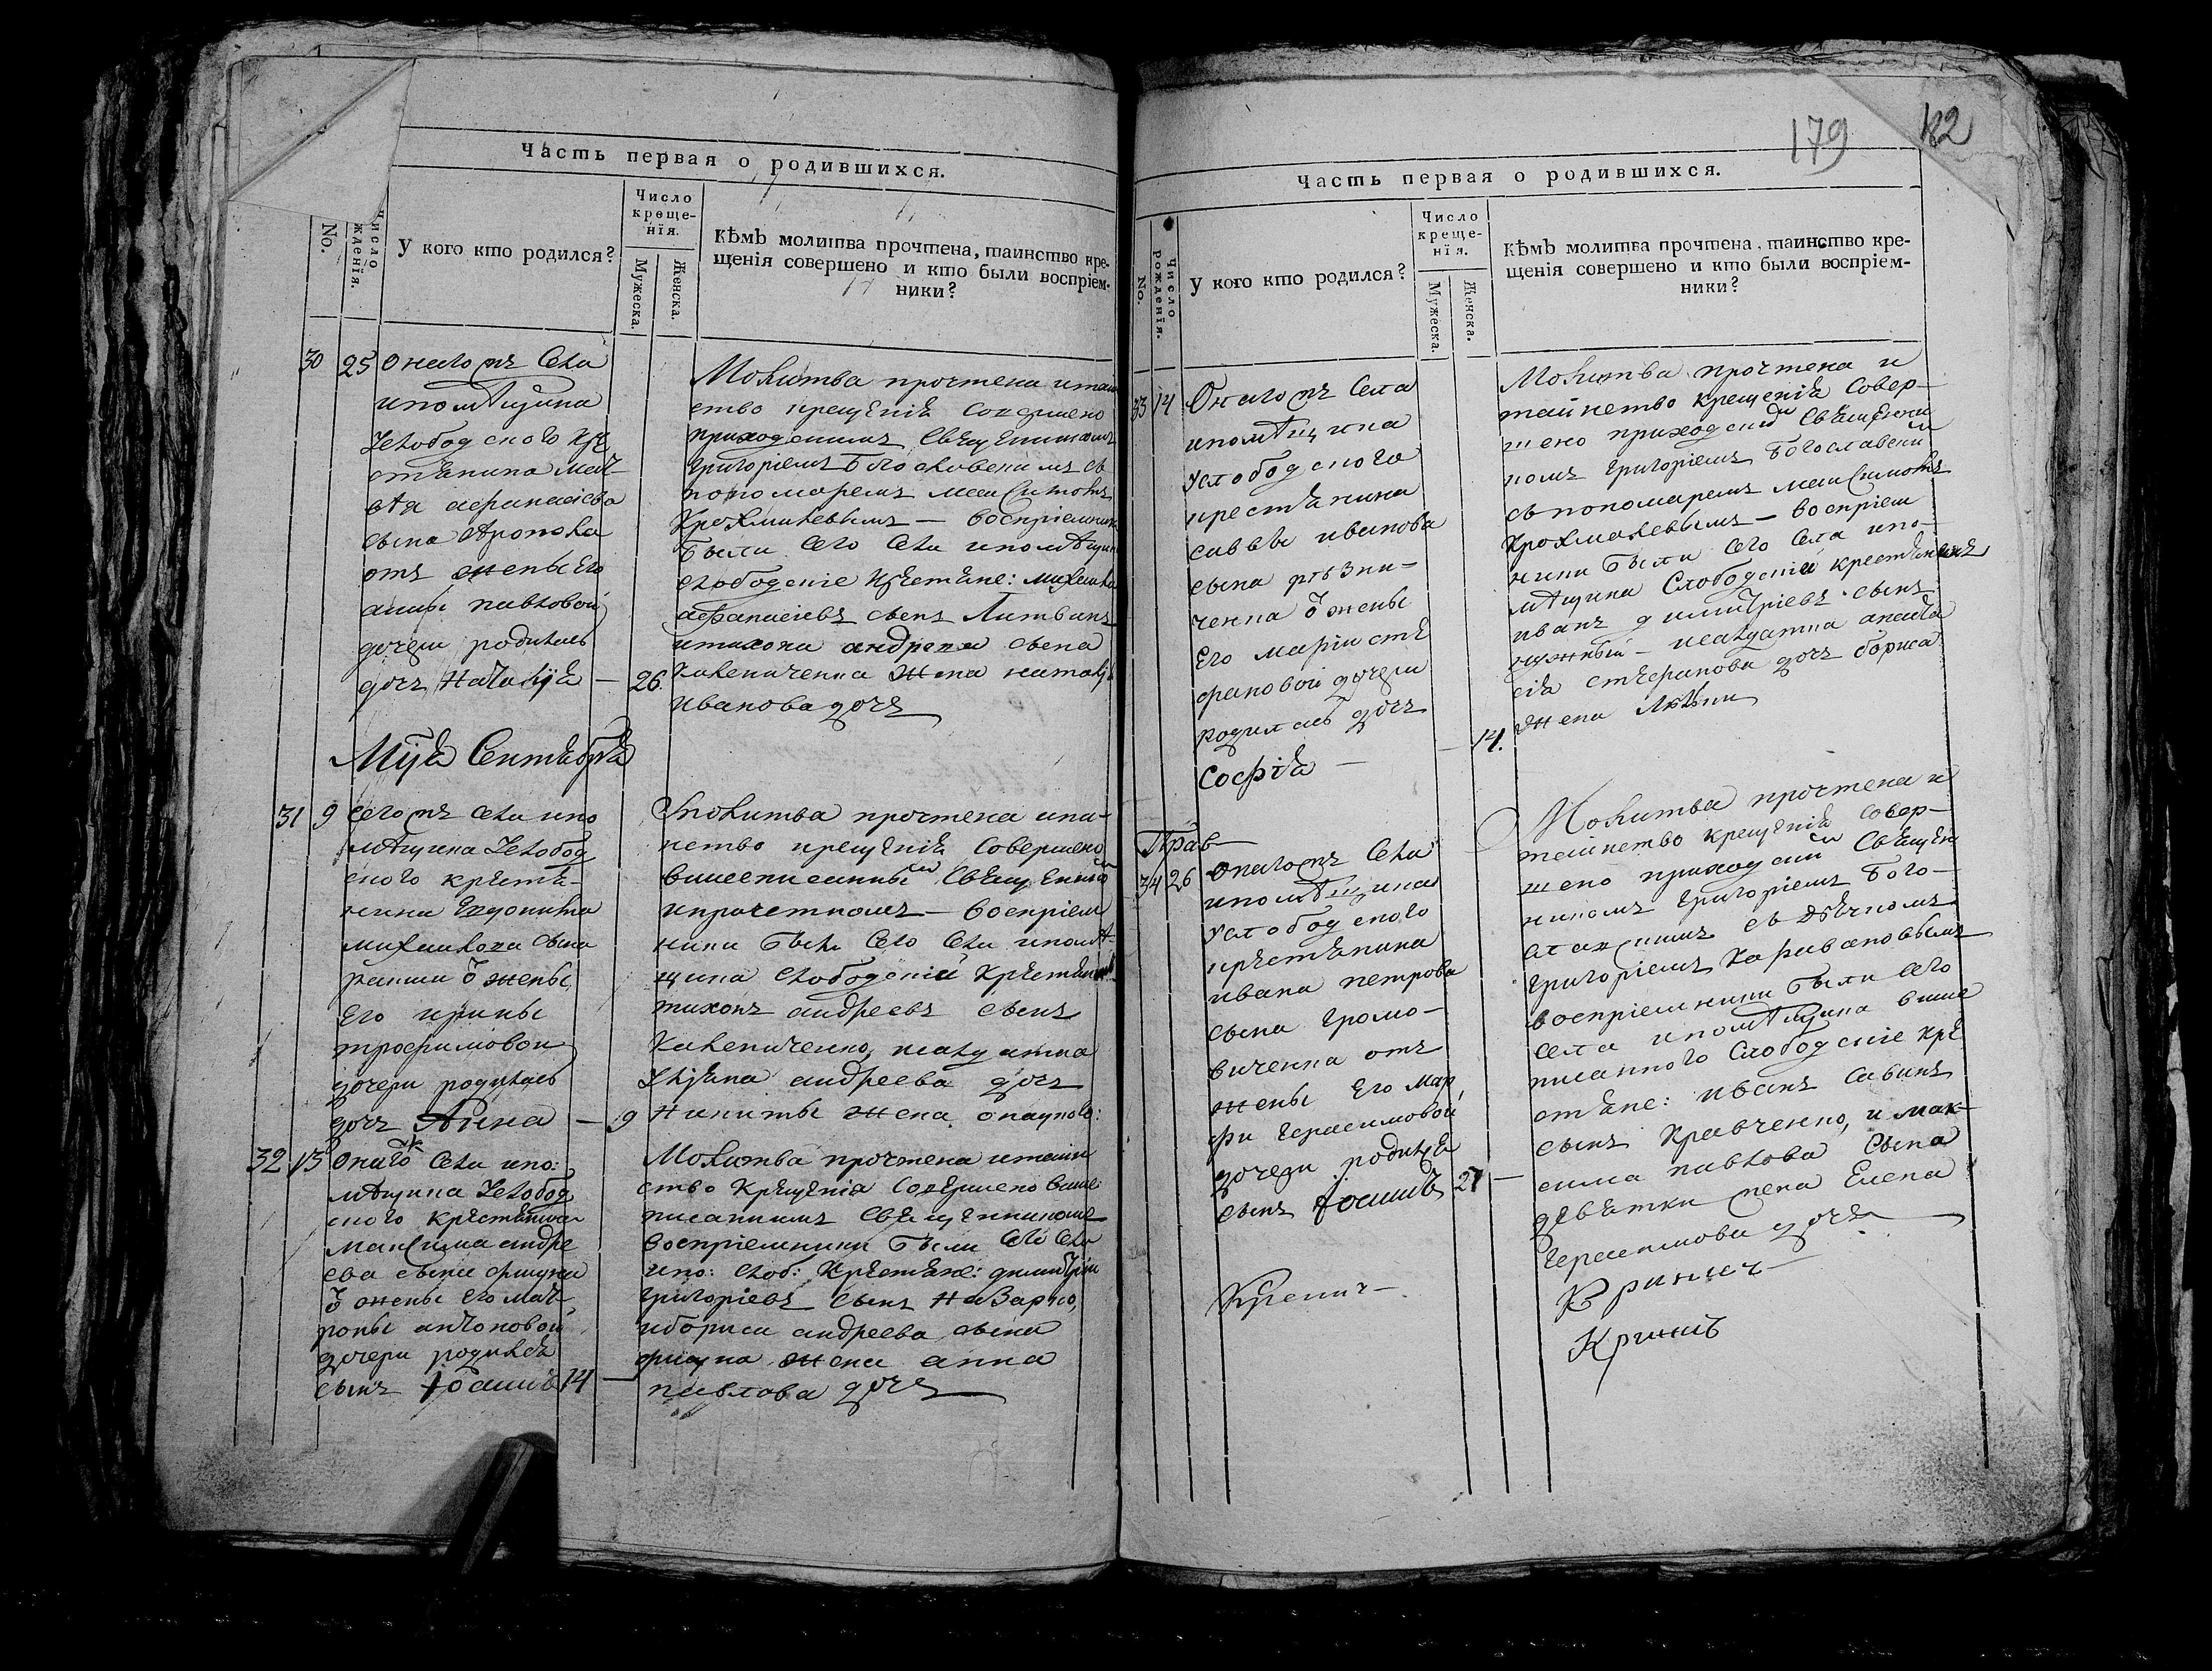 Часть первая о родившихся.
No.
Число
жденїя.
У кого кто родился?
Число
креще-
нїя.
Мужеска.
Женска.
Кѣмъ молитва прочтена, таинство кре-
щенія совершено и кто были воспріем-
ники?
30 25 Онаго пъ Села
ипомѣщика
кре
стянина Мат
вѣя афанасіева
сына
отъ жены Его
анны павловой
дочери родилась
дочь Наталія — 26.
Молитва прочтена и таин
ство крещенія Совершено
приходскимъ Священникомъ
григоріемъ Богословскимъ съ
пономаремъ Максимомъ
Крохмалевымъ — воспріемник
были Сего Села ипомѣщик
слободскіе Крестяне: михаила
афанасіевъ сынъ Литвинъ
и тихона андреева сына
Калениченка жена наталія
иванова дочь
Мца Сентября
31 9 Сего пъ села ипо
мѣщика
ского крестя-
нина
михайлова сына
ѿ жены
Его ирины
трофимовой
дочери родилась
дочь Анна — 9
Молитва прочтена и таи-
нство крещенія Совершено
вышеписаннымъ Священнико
и причетникомъ — воспріем
ники были Сего Села ипомѣ-
щика слободскій Крестянинъ
тихонъ андреевъ сынъ
Калениченко, и солдатка
андреева дочь
Никиты жена
32 13 Онаго Села ипо:
мѣщика
ского крестянина
Максима андре
ева сына фищука
ѿ жены его мат
роны антоновой
дочери родился
сынъ Іоаннъ 14 —
Молитва прочтена и таин
ство Крещенія Совершено выше
писаннымъ Священникомъ
воспріемники были Сего Села
ипо: слоб: Крестяне: димитрій
григоріевъ сынъ Назарко,
и бориса андреева сына
фищука жена анна
павлова дочь
179 182
Часть первая о родившихся.
No.
Число
рожденїя.
У кого кто родился?
Число
креще-
нїя.
Мужеска.
Женска.
Кѣмъ молитва прочтена, таинство кре-
щенія совершено и кто были воспріем-
ники?
33 14 Онаго пъ Села
ипомѣщика
услободского
крестянина
саввы иванова
сына рѣзни-
ченка ѿ жены
Его маріи сте
фановой дочери
родилась дочь
Софія — — 14.
Молитва прочтена и
таинство крещенія Совер-
шено приходским Священни
комъ григоріемъ Богославским
съ пономаремъ Максимомъ
Крохмалевымъ — воспріем
ники были Сего Села ипо-
мѣщика Слободскій крестянинъ
иванъ димитріевъ сынъ
нужный — и солдатка анаста
сія стефанова дочь бориса
жена
34 26 Онаго пъ Села
ипомѣщика
услободского
крестянина
ивана петрова
сына громо-
виченка отъ
жены Его мар
фи герасимовой
дочери родился
сынъ Іоаннъ 27 —
Молитва прочтена и
таинство крещенія совер-
шено приходским Священ
никомъ григоріемъ Бого-
славскимъ съ дячкомъ
григоріемъ Каравановымъ
воспріемники были Сего
села ипомѣщика выше
писанного Слободскіе кре
стяне: иванъ Савинъ
сынъ Кравченко, и мак-
сима павлова Сына
девятки жена Елена
герасимова дочь